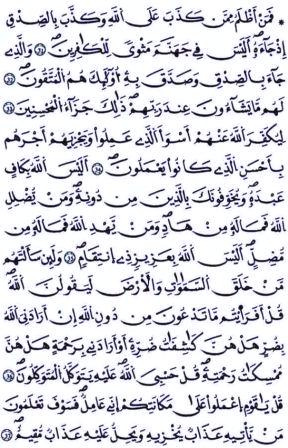 * فَمَنْ أَظْلَمُ مِمَّن كَذَبَ عَلَى ٱللَّهِ وَكَذَّبَ بِٱلصِّدْقِ
إِذْ جَآءَهُۥٓ أَلَيْسَ فِى جَهَنَّمَ مَثْوًى لِّلْكَٰفِرِينَ ۝ وَٱلَّذِى
جَآءَ بِٱلصِّدْقِ وَصَدَّقَ بِهِۦٓ أُو۟لَٰٓئِكَ هُمُ ٱلْمُتَّقُونَ ۝
لَهُم مَّا يَشَآءُونَ عِندَ رَبِّهِمْ ذَٰلِكَ جَزَآءُ ٱلْمُحْسِنِينَ ۝
لِيُكَفِّرَ ٱللَّهُ عَنْهُمْ أَسْوَأَ ٱلَّذِى عَمِلُوا۟ وَيَجْزِيَهُمْ أَجْرَهُم
بِأَحْسَنِ ٱلَّذِى كَانُوا۟ يَعْمَلُونَ ۝ أَلَيْسَ ٱللَّهُ بِكَافٍ
عَبْدَهُۥ وَيُخَوِّفُونَكَ بِٱلَّذِينَ مِن دُونِهِۦ وَمَن يُضْلِلِ
ٱللَّهُ فَمَا لَهُۥ مِنْ هَادٍ ۝ وَمَن يَهْدِ ٱللَّهُ فَمَا لَهُۥ مِن
مُّضِلٍّ أَلَيْسَ ٱللَّهُ بِعَزِيزٍ ذِى ٱنتِقَامٍ ۝ وَلَئِن سَأَلْتَهُم
مَّنْ خَلَقَ ٱلسَّمَٰوَٰتِ وَٱلْأَرْضَ لَيَقُولُنَّ ٱللَّهُ
قُلْ أَفَرَءَيْتُم مَّا تَدْعُونَ مِن دُونِ ٱللَّهِ إِنْ أَرَادَنِىَ ٱللَّهُ
بِضُرٍّ هَلْ هُنَّ كَٰشِفَٰتُ ضُرِّهِۦٓ أَوْ أَرَادَنِى بِرَحْمَةٍ هَلْ هُنَّ
مُمْسِكَٰتُ رَحْمَتِهِۦ قُلْ حَسْبِىَ ٱللَّهُ عَلَيْهِ يَتَوَكَّلُ ٱلْمُتَوَكِّلُونَ ۝
قُلْ يَٰقَوْمِ ٱعْمَلُوا۟ عَلَىٰ مَكَانَتِكُمْ إِنِّى عَٰمِلٌ فَسَوْفَ تَعْلَمُونَ
مَن يَأْتِيهِ عَذَابٌ يُخْزِيهِ وَيَحِلُّ عَلَيْهِ عَذَابٌ مُّقِيمٌ ۝